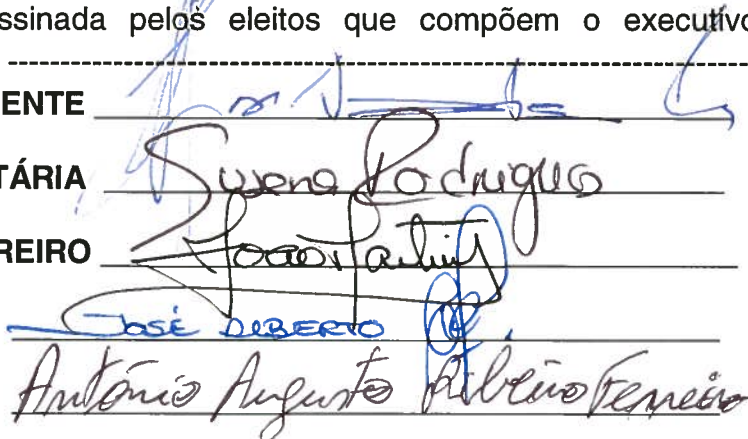 ssinada pelos eleitos que compõem o executivo
ENTE
TÁRIA Susana Rodrigues
REIRO João Martins
JOSÉ ALBERTO
António Augusto Ribeiro Ferreira